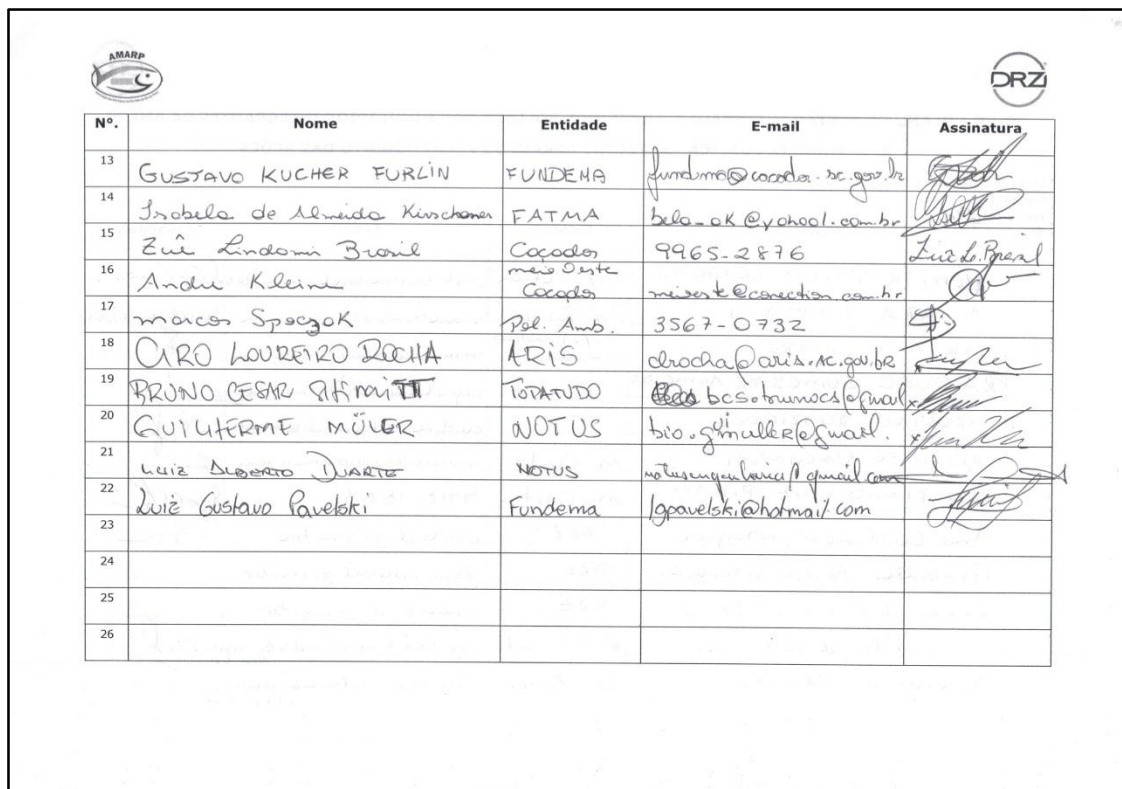 AMARP
DRZ
Nº. Nome Entidade E-mail Assinatura
13 GUSTAVO KUCHER FURLIN FUNDEMA fundema@cacador.sc.gov.br
14 Isabela de Almeida Kirschner FATMA bela_ok@yahool.com.br
15 Lindomir Brasil Caçador 9965-2876
16 André Kleine meio Oeste Caçador
17 marcos Pol. Amb. 3567-0732
18 CIRO LOUREIRO ROCHA ARIS @aris.sc.gov.br
19 BRUNO CESAR TOPATUDO
20 GUILHERME MÜLER NOTUS bio.guimuller@gmail.
21 LUIZ ALBERTO DUARTE NOTUS notusengenharia@gmail.com
22 Luiz Gustavo Pavelski Fundema lgpavelski@hotmail.com
23
24
25
26